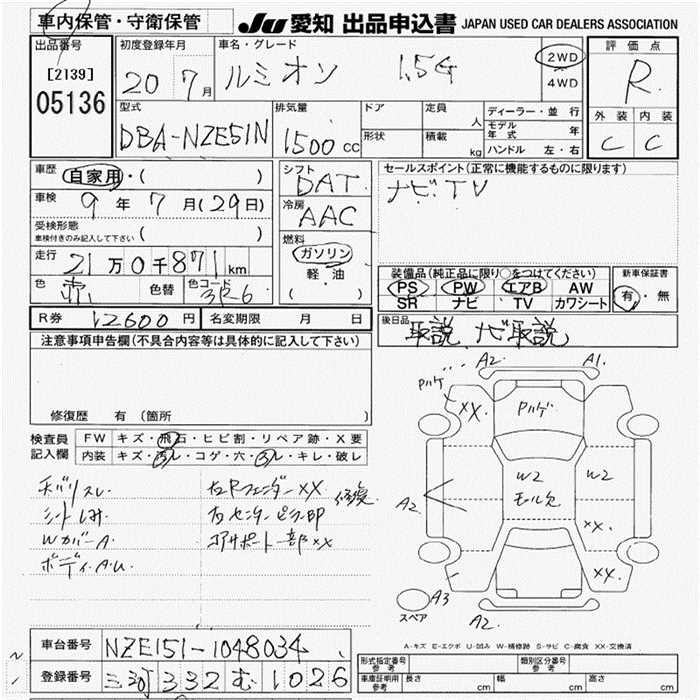 車内保管・守衛保管
JU 愛知 出品申込書 JAPAN USED CAR DEALERS ASSOCIATION
出品番号 初度登録年月 車名・グレード 評価点
[2139]
05136
20 7月 ルミオン 1.5G 2WD 4WD R
外装 内装
C C
型式 排気量 ドア 定員 人 ディーラー・並行
DBA-NZE151N 1500cc 形状 積載 kg モデル年式 年
ハンドル 左・右
車歴 自家用・( ) シフト DAT セールスポイント(正常に機能するものに限ります)
車検 9年7月(29日) 冷房 AAC ナビTV
受検形態 ( )
車検付きのみ記入して下さい
燃料 ガソリン 軽・油 ( )
走行 21万0千871km
色 赤 色替 色コード 3R-6
装備品(純正品に限り○をつけてください) 新車保証書
PS PW エアB AW 有・無
SR ナビ TV カワシート
R券 12600円 名変期限 月 日
後日品 取説 ナビ取説
注意事項申告欄(不具合内容等は具体的に記入して下さい)
修復歴 有 (箇所
検査員記入欄 FW キズ・飛石・ヒビ割・リペア跡・X要
内装 キズ・汚レ・コゲ・穴・スレ・キレ・破レ
天バリスレ 右Rフェンダー XX 修復
シート シミ 右センターピラー凹
WカバーA コアサポート一部XX
ボディ・A.U
A2 A1
XX
A2
W2 W2
モール欠
XX
XX
A3
A2
スペア
A-キズ E-エクボ U-凹み W-補修跡 S-サビ C-腐食 XX-交換済
車台番号 NZE151-1048034
登録番号 332 む 1026
形式指定番号 参考 類別区分番号 参考
車庫証明用 参考 長さ cm 幅 cm 高さ cm